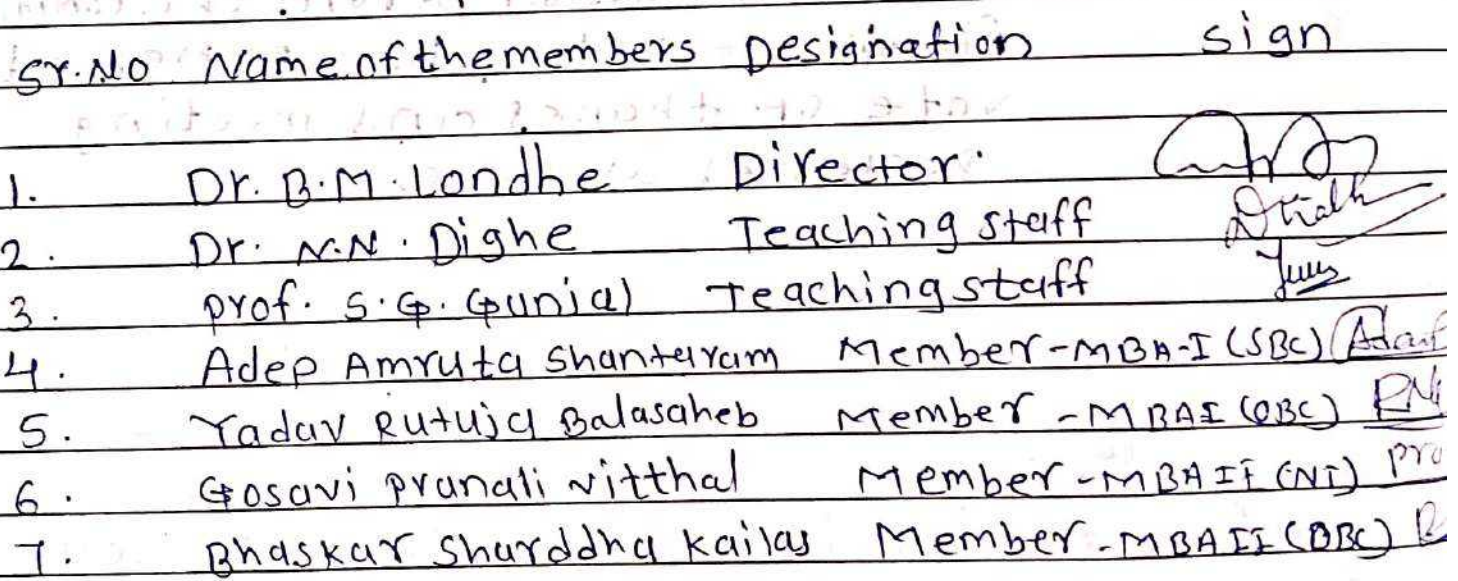 Sr.No Name of the members Designation sign
1. Dr. B.M. Londhe Director.
2. Dr. N.N. Dighe Teaching staff
3. prof. S.G. Gunjal Teaching staff
4. Adep Amruta Shantaram Member-MBA-I (SBC)
5. Yadav Rutuja Balasaheb Member -MBAI (OBC)
6. Gosavi pranali vitthal Member -MBAII (NT)
7. Bhaskar Sharddha Kailas Member -MBAII (OBC)